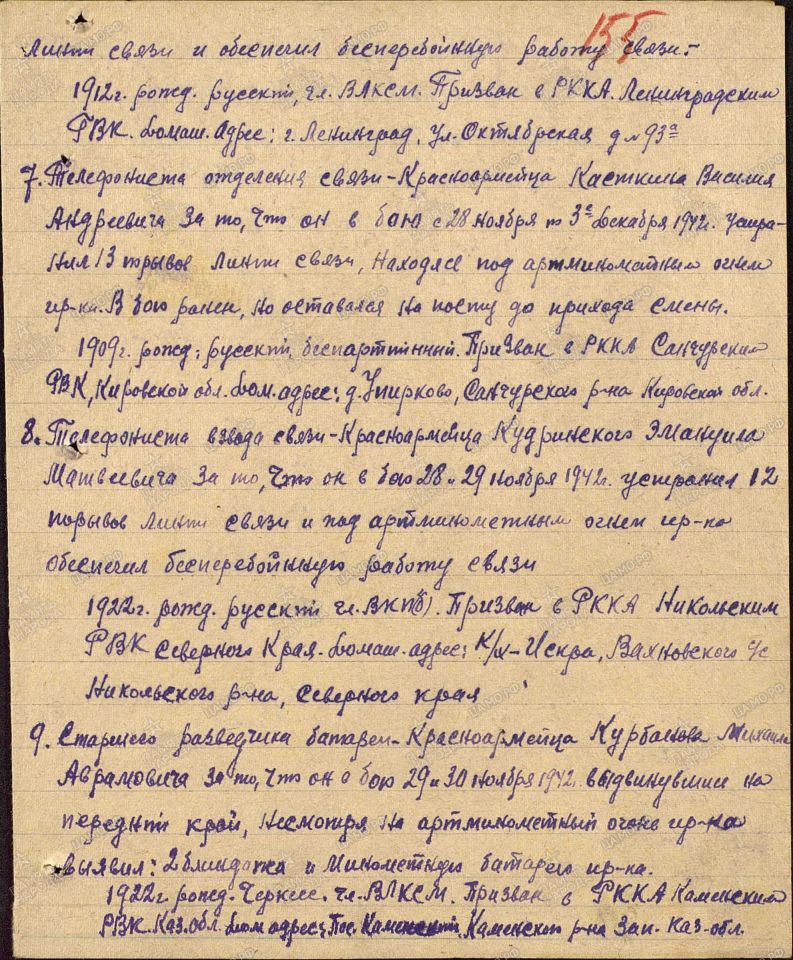 155
линии связи и обеспечил бесперебойную работу связи.-
1912г. рожд. русский, чл. ВЛКСМ. Призван в РККА Ленинградским
ГВК. Домаш. Адрес: г. Ленинград, ул. Октябрьская д № 93а
7. Телефониста отделения связи-Красноармейца Касткина Василия
Андреевича За то, Что он в бою с 28 ноября по 3е Декабря 1942г. устра-
нил 13 порывов линии связи, находясь под артминометным огнем
пр-ка. В бою ранен, но оставался на посту до прихода смены.
1909г. рожд: русский, беспартийный. Призван в РККА Санчурским
РВК, Кировской обл. Дом. адрес: д. , Санчурского р-на Кировской обл.
8. Телефониста взвода связи-Красноармейца Кудринского Эмануила
Матвеевича За то, Что он в бою 28 и 29 ноября 1942г. устранил 12
порывов линии связи и под артминометным огнем пр-ка
обеспечил бесперебойную работу связи
1922г. рожд. русский чл. ВКП(б). Призван в РККА Никольским
РВК Северного Края. Домаш. адрес: к/х-Искра, Вахновского с/с
Никольского р-на, Северного края
9. Старшего разведчика батареи-Красноармейца Курбанова Михаила
Аврамовича За то, Что он в бою 29 и 30 ноября 1942. выдвинувшись на
передний край, несмотря на артминометный огонь пр-ка
выявил: 2 блиндажа и минометную батарею пр-ка.
1922г. рожд. Черкес. чл. ВЛКСМ. Призван в РККА Каменским
РВК. Каз. обл. Дом адрес: Пос. Каменский, Каменского р-на Зап. Каз-обл.